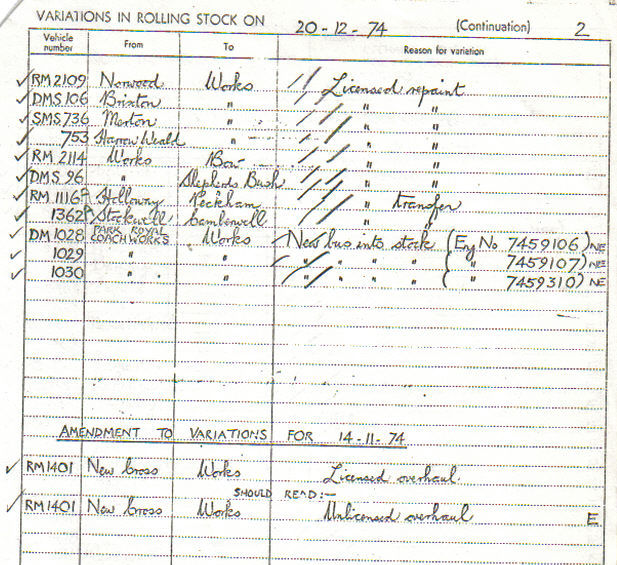 VARIATIONS IN ROLLING STOCK ON 20-12-74 (Continuation) 2
Vehicle number From To Reason for variation
RM 2109 Norwood Works // Licensed repaint
DMS 106 Brixton " // " "
SMS 736 Merton " // " "
753 Harrow Weald " // " "
RM 2114 Works Bow // " "
DMS 96 " Shepherds Bush // " "
RM 1116 Holloway Peckham // " Transfer
1362 Stockwell Camberwell // " "
DM 1028 PARK ROYAL COACHWORKS Works New bus into stock (Eng No 7459106) NE
1029 " " " " " " ( " 7459107) NE
1030 " " " " " " ( " 7459310) NE
AMENDMENT TO VARIATIONS FOR 14-11-74
RM1401 New Cross Works Licensed overhaul.
SHOULD READ:-
RM1401 New Cross Works Unlicensed overhaul E